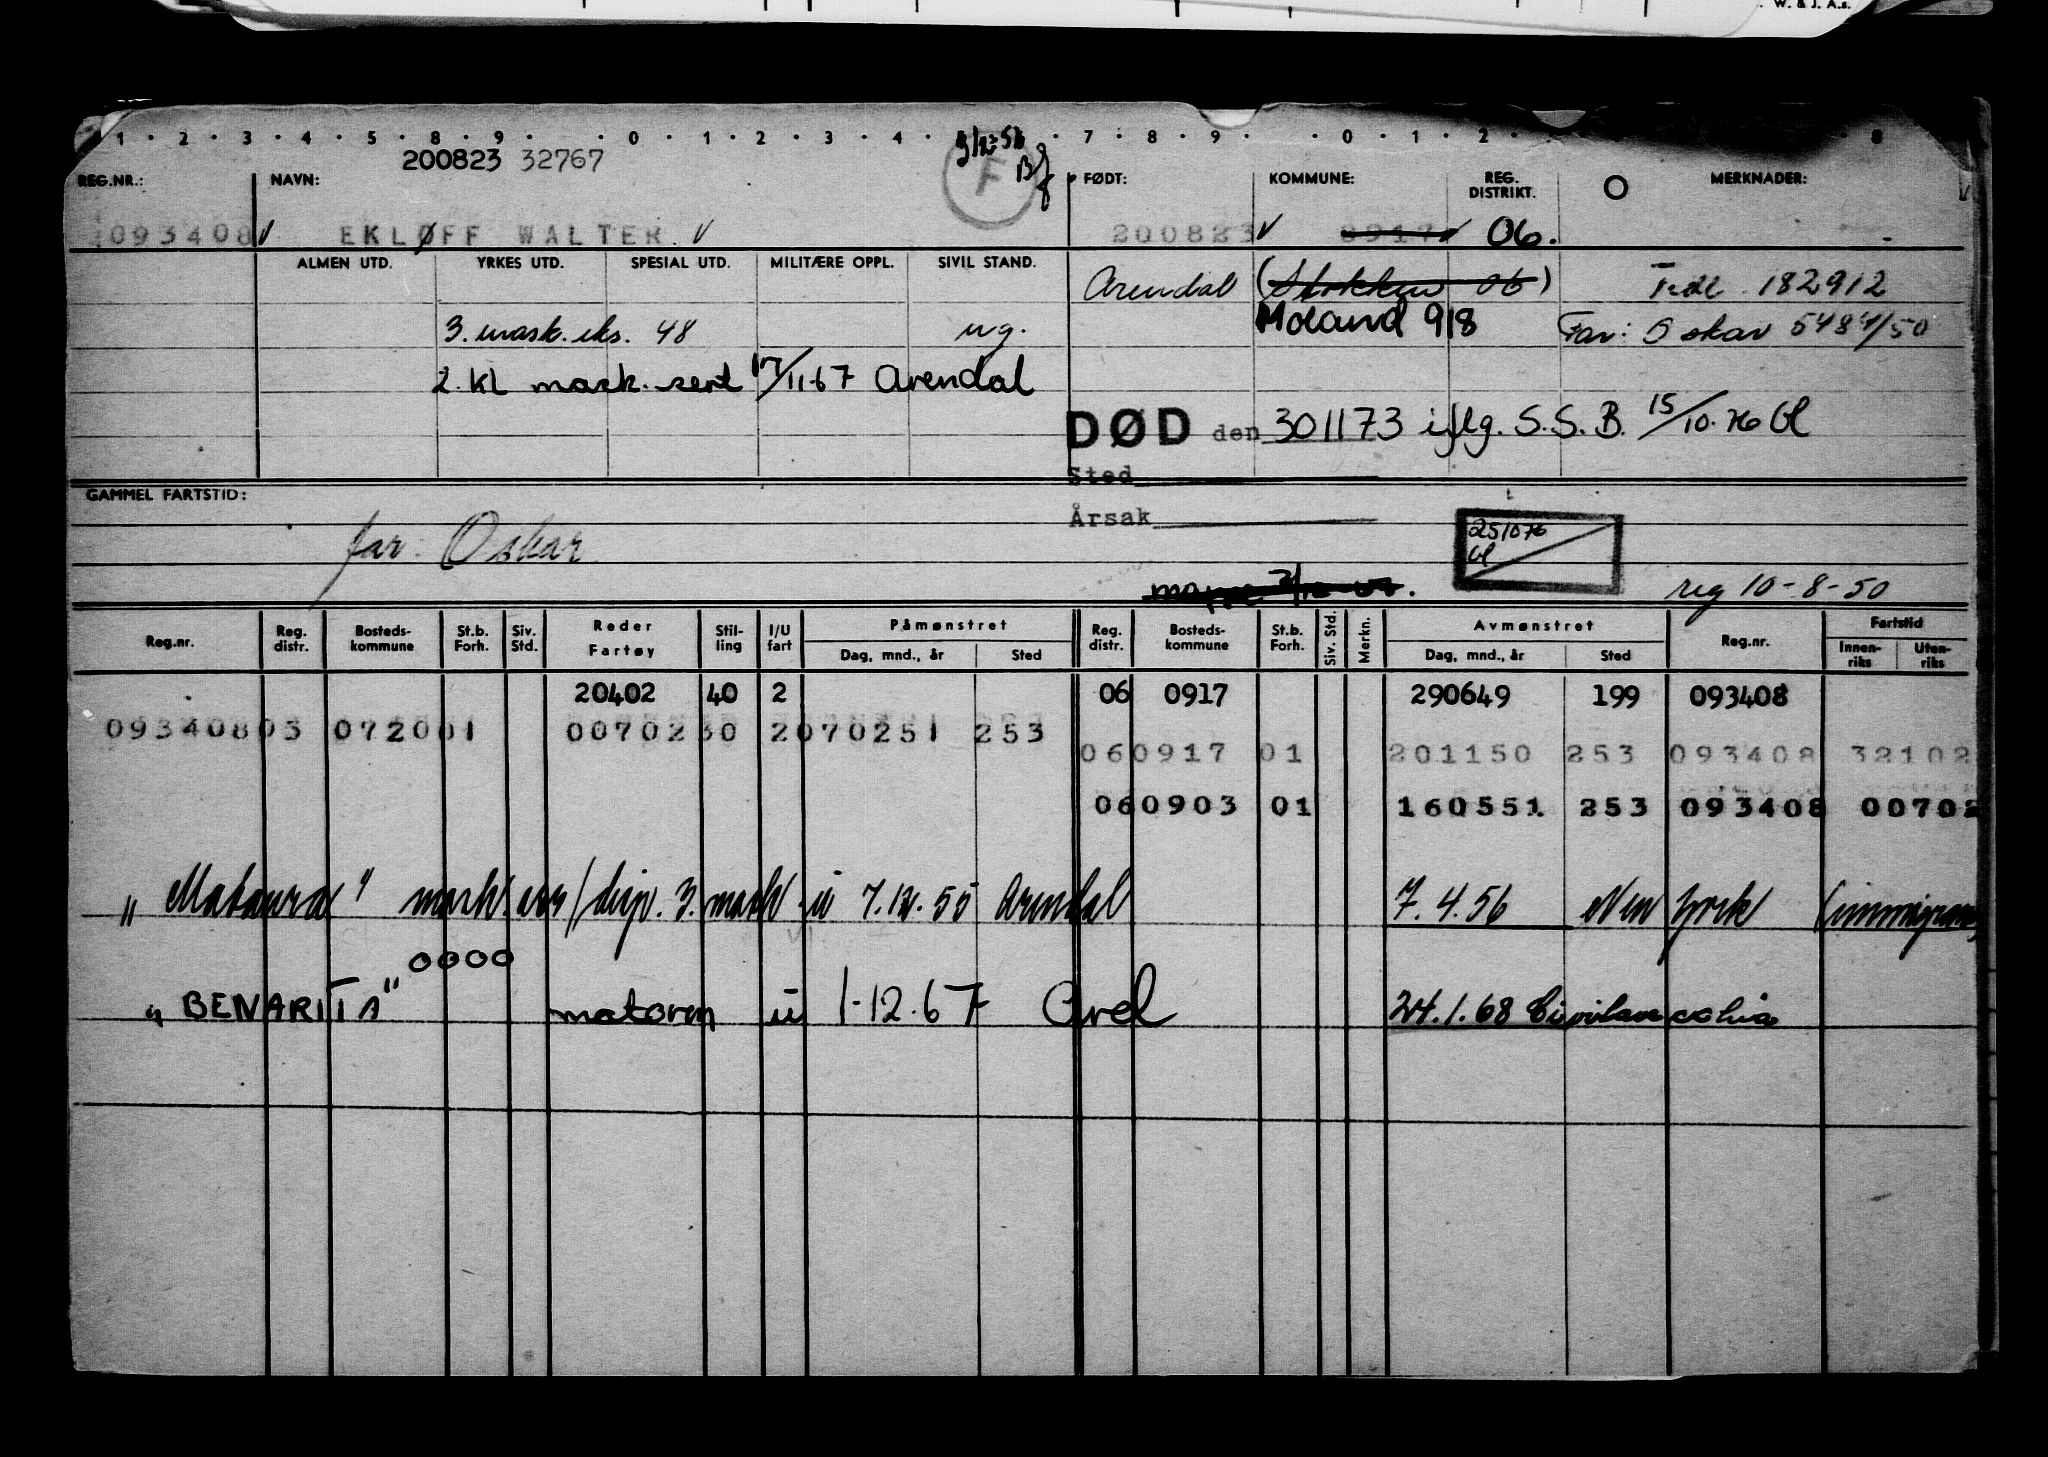 W. & J. A.s.
1 · 2 · 3 · 4 · 5 · 8 · 9 · · 0 · 1 · 2 · 3 · 4 · · 7 · 8 · 9 · · 0 · 1 · 2 · 8
200823 32767
F
REG.NR.: NAVN: FØDT: KOMMUNE: REG. DISTRIKT. MERKNADER:
093408 EKLØFF WALTER 200823 0917 06.
ALMEN UTD. YRKES UTD. SPESIAL UTD. MILITÆRE OPPL. SIVIL STAND. Arendal (Stokken 06) 182912
3. mask. eks. 48 ug. Moland 918 Far: Oskar 5484/50
2. kl mask. sert 17/11-67 Arendal
DØD den 301173 iflg. S.S.B. 15/10.76 Gl
Sted
GAMMEL FARTSTID:
Årsak
251076
Gl
far: Oskar
reg 10-8-50
Reg.nr. Reg. distr. Bosteds-kommune St.b. Forh. Siv. Std. Reder Fartøy Stil-ling I/U fart Påmønstret Dag, mnd., år Sted Reg. distr. Bosteds-kommune St.b. Forh. Siv. Std. Merkn. Avmønstret Dag, mnd., år Sted Reg.nr. Fartstid Innen-riks Uten-riks
20402 40 2 06 0917 290649 199 093408
093408 03 0720 01 00702 30 2 070251 253
06 0917 01 201150 253 093408 32102
06 0903 01 160551 253 093408 00702
"Mataura" mask. ass/disp. 3. mask. u 7.12.55 Arendal 7.4.56 New York
0000
"BENARITA" matorm u 1-12.67 Arel 24.1.68